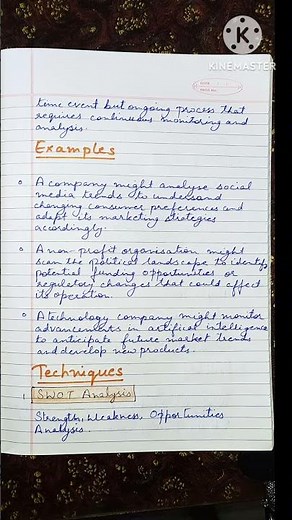 KINEMASTER
time event but ongoing process that
requires continuous monitoring and
analysis.
Examples
A company might analyse social
media trends to understand
changing consumer preferences and
adapt its marketing strategies
accordingly.
A non-profit organisation might
scan the political landscape to identify
potential funding opportunities or
regulatory changes that could affect
its operation.
A technology company might monitor
advancements in artificial intelligence
to anticipate future market trends
and develop new products.
Techniques
1. SWOT Analysis
Strength, Weakness, Opportunities
Analysis.